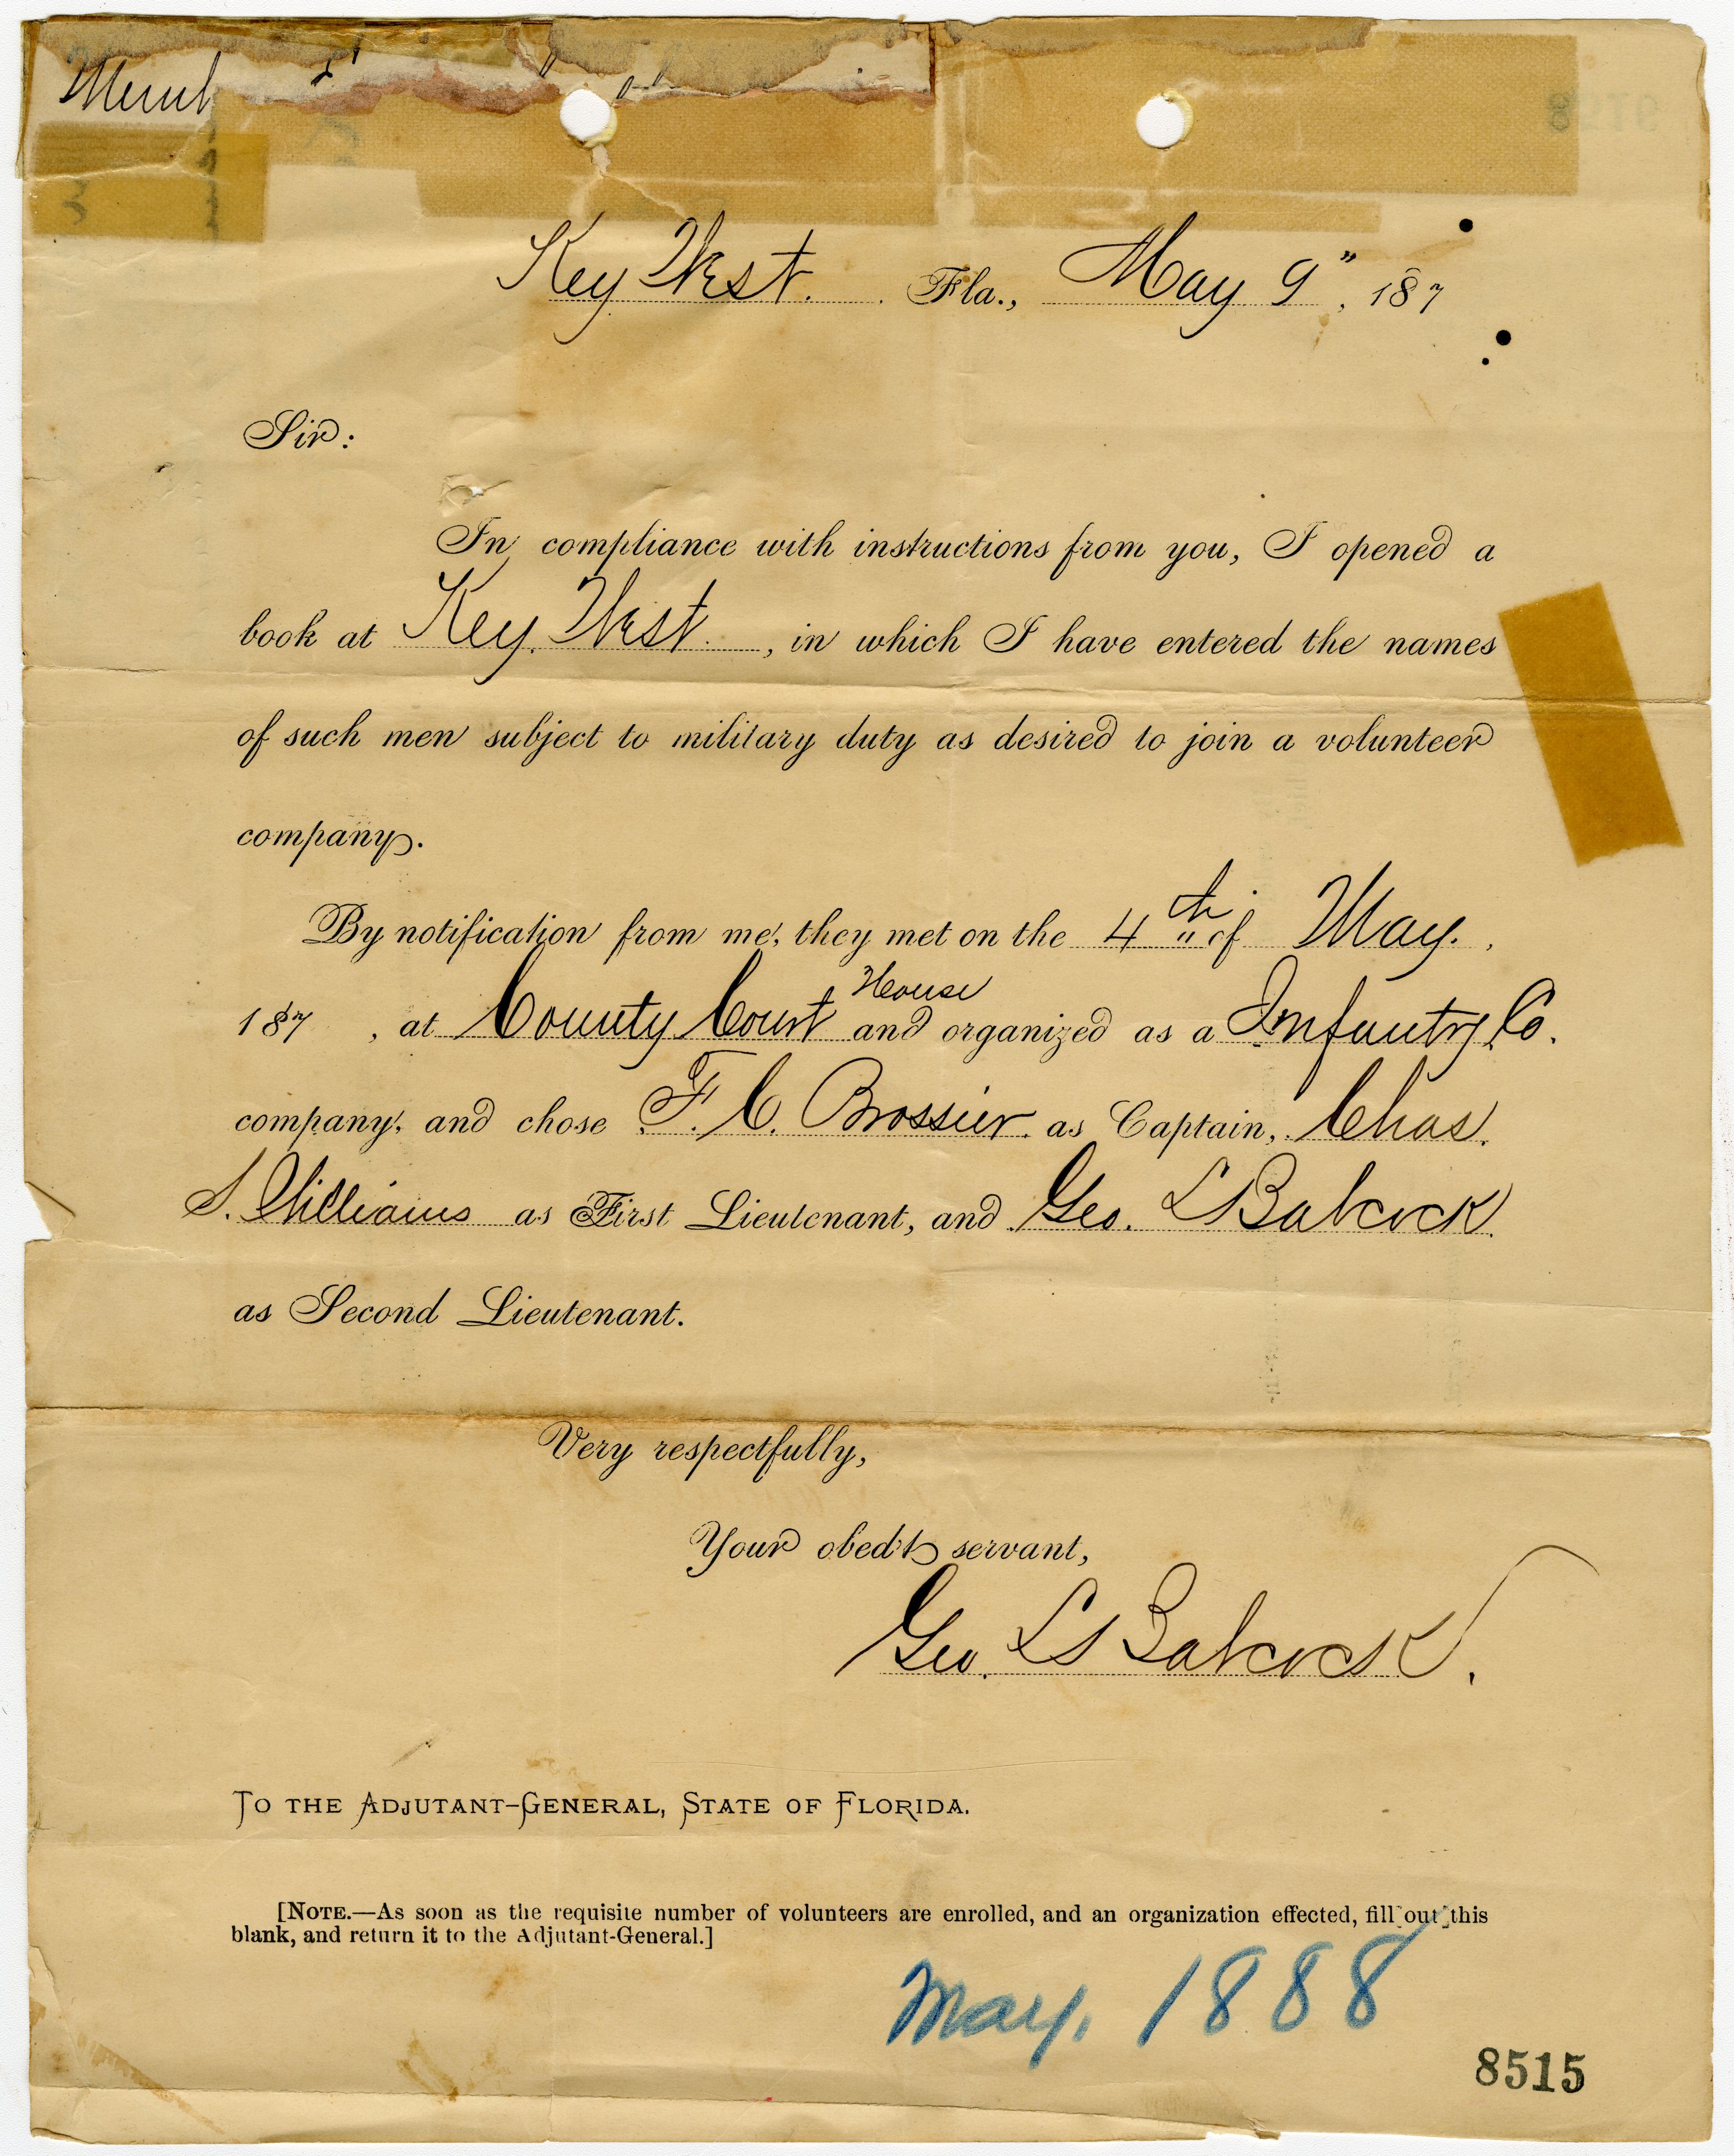 Key West. Fla., May 9", 187
Sir:
In compliance with instructions from you, I opened a
book at Key West, in which I have entered the names
of such men subject to military duty as desired to join a volunteer
company.
By notification from me, they met on the 4th of May.,
187 , at County Court House and organized as a Infantry Co.
company, and chose F. C. Brossier as Captain, Chas.
S. Williams as First Lieutenant, and Geo. L Babcock
as Second Lieutenant.
Very respectfully,
Your obed't servant,
Geo. L Babcock.
TO THE ADJUTANT-GENERAL, STATE OF FLORIDA.
[NOTE.—As soon as the requisite number of volunteers are enrolled, and an organization effected, fill out this
blank, and return it to the Adjutant-General.]
May, 1888
8515